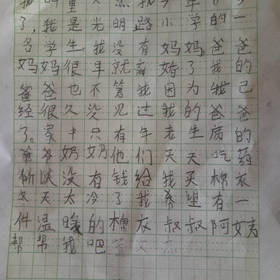 了,我是光明路小学的一
名学生我没有妈妈,爸爸
妈妈很早就离婚了我的
爸爸也不管我因为我已
经很久没见过我的爸爸
了。家中只有年老生病的
爷爷奶奶他们天天吃药
所以没有钱给我买棉衣
冬天太冷了我希望有一
件温暖的棉衣叔叔阿姨
帮帮我吧